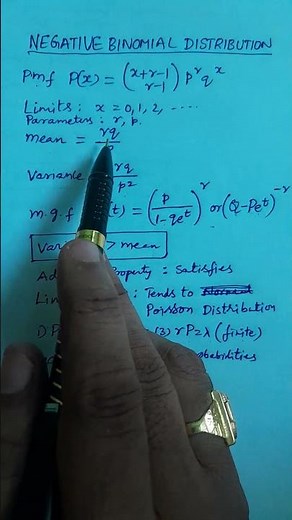 NEGATIVE BINOMIAL DISTRIBUTION
Pmf P(x) = (x+r-1 r-1) p^r q^x
Limits : x = 0, 1, 2, ....
Parameters : r, p.
mean = rq
Varian rq/p²
m.g.f (t) = (p/1-qe^t)^r or (Q-Pe^t)^-r
Var > mean
Ad Property : Satisfies
Li : Tends to
Poisson Distribution
D.P (3) rP=λ (finite)